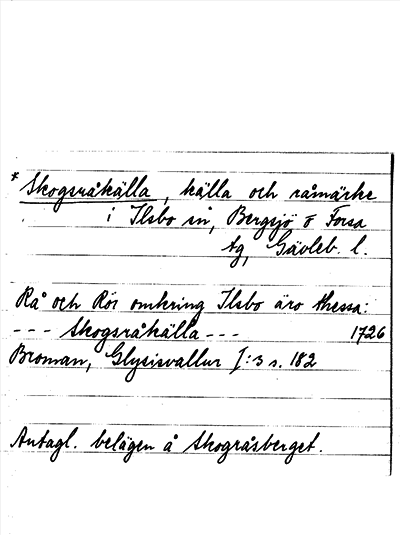 * Skogsråkälla, källa och råmärke
i Ilsbo sn, Bergsjö o Forsa
tg, Gävleb. l.
Rå och Rör omkring Ilsbo äro thessa:
--- Skogsråkälla --- 1726
Broman, Glysisvallur I:3 s. 182
Antagl. belägen å Skogråsberget.